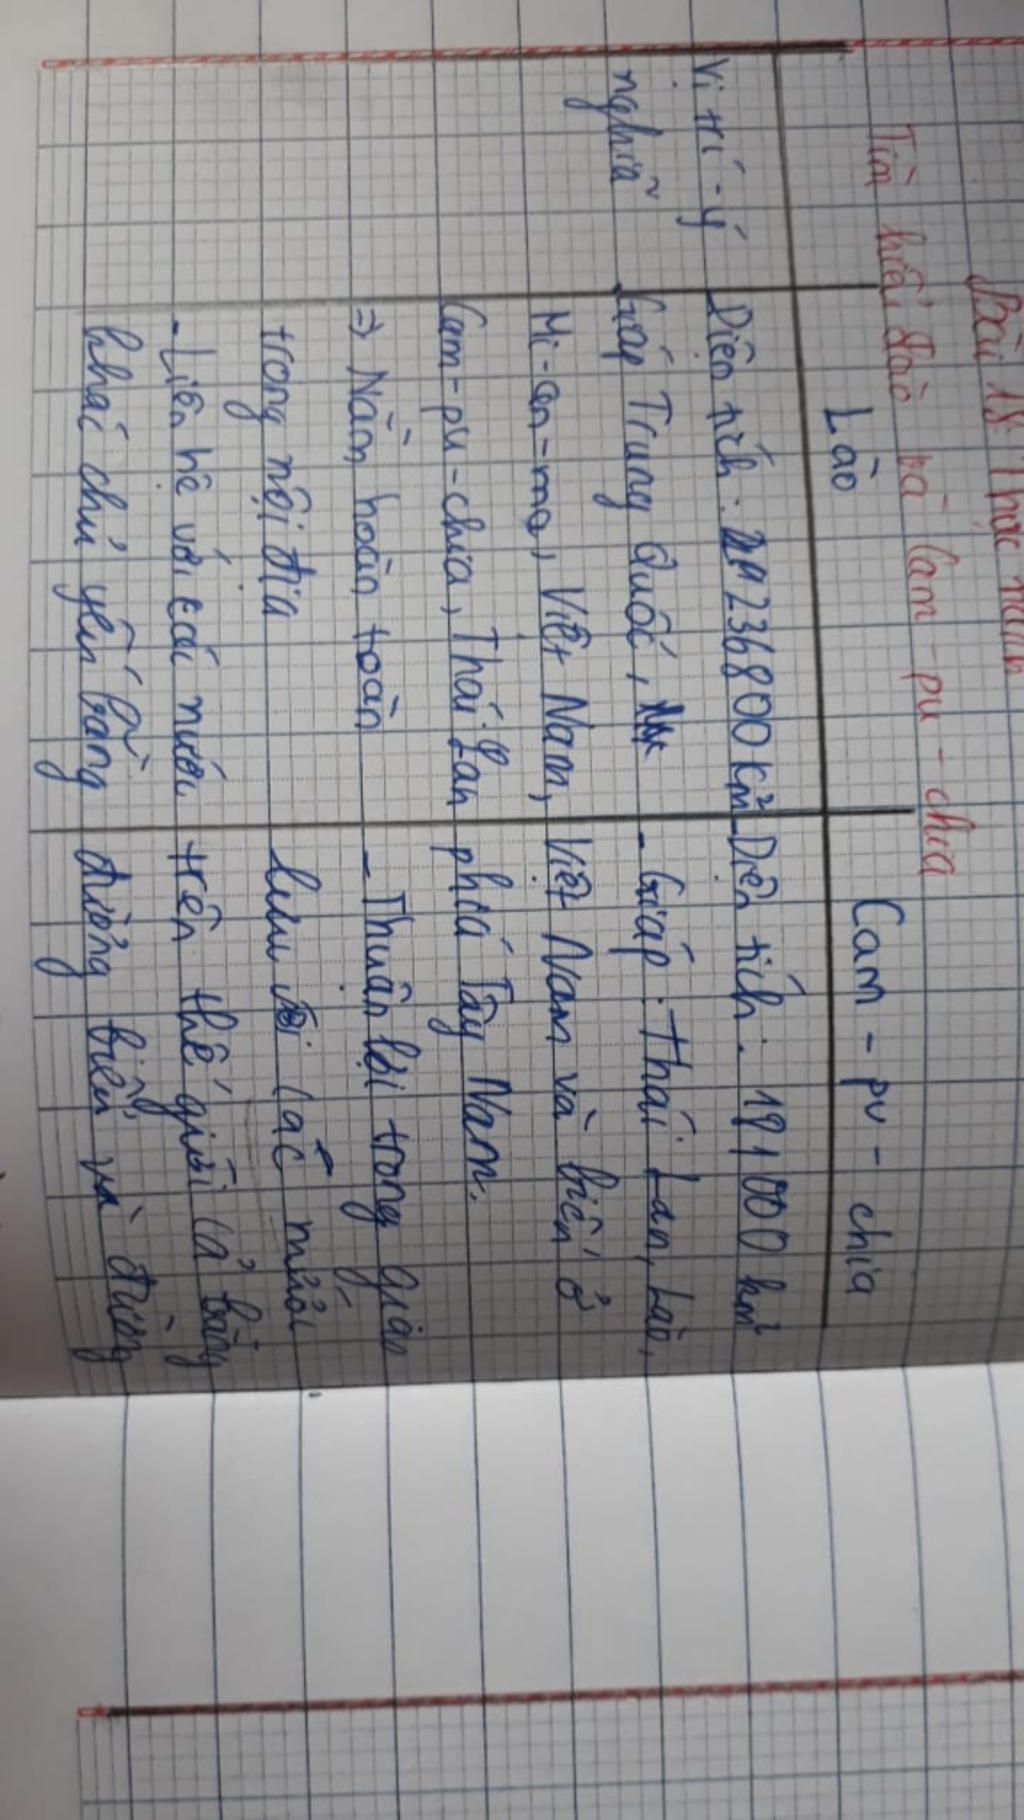 Bài 18: Thực hành
Tìm hiểu Lào và Cam-pu-chia
Lào
Cam-pu-chia
Vị trí-ý
nghĩa
Diện tích: 236800 km²
Giáp Trung Quốc,
Mi-an-ma, Việt Nam,
Cam-pu-chia, Thái Lan
=> Nằm hoàn toàn
trong nội địa
- Liên hệ với các nước
khác chủ yếu bằng
- Diện tích: 181000 km²
- Giáp: Thái Lan, Lào,
Việt Nam và biển ở
phía Tây Nam.
- Thuận lợi trong giao
lưu với các nước
trên thế giới cả bằng
đường biển và đường